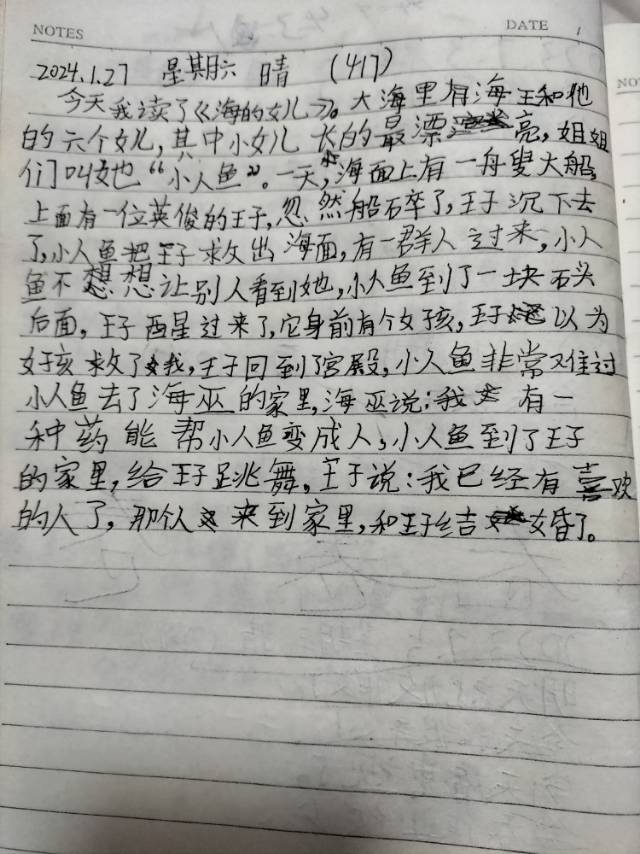 NOTES DATE
2024.1.27 星期六 晴 (417)
今天我读了《海的女儿》。大海里有海王和他
的六个女儿,其中小女儿长的最漂亮,姐姐
们叫她“小人鱼”。一天,海面上有一舟叟大船,
上面有一位英俊的王子,忽然船碎了,王子沉下去
了,小人鱼把王子救出海面,有一群人过来,小人
鱼不想想让别人看到她,小人鱼到了一块石头
后面,王子西星过来了,它身前有个女孩,王子以为
女孩救了我,王子回到了宫殿,小人鱼非常难过
小人鱼去了海巫的家里,海巫说:我有一
种药能帮小人鱼变成人,小人鱼到了王子
的家里,给王子跳舞,王子说:我已经有喜欢
的人了,那个人来到家里,和王子结婚了。
NO